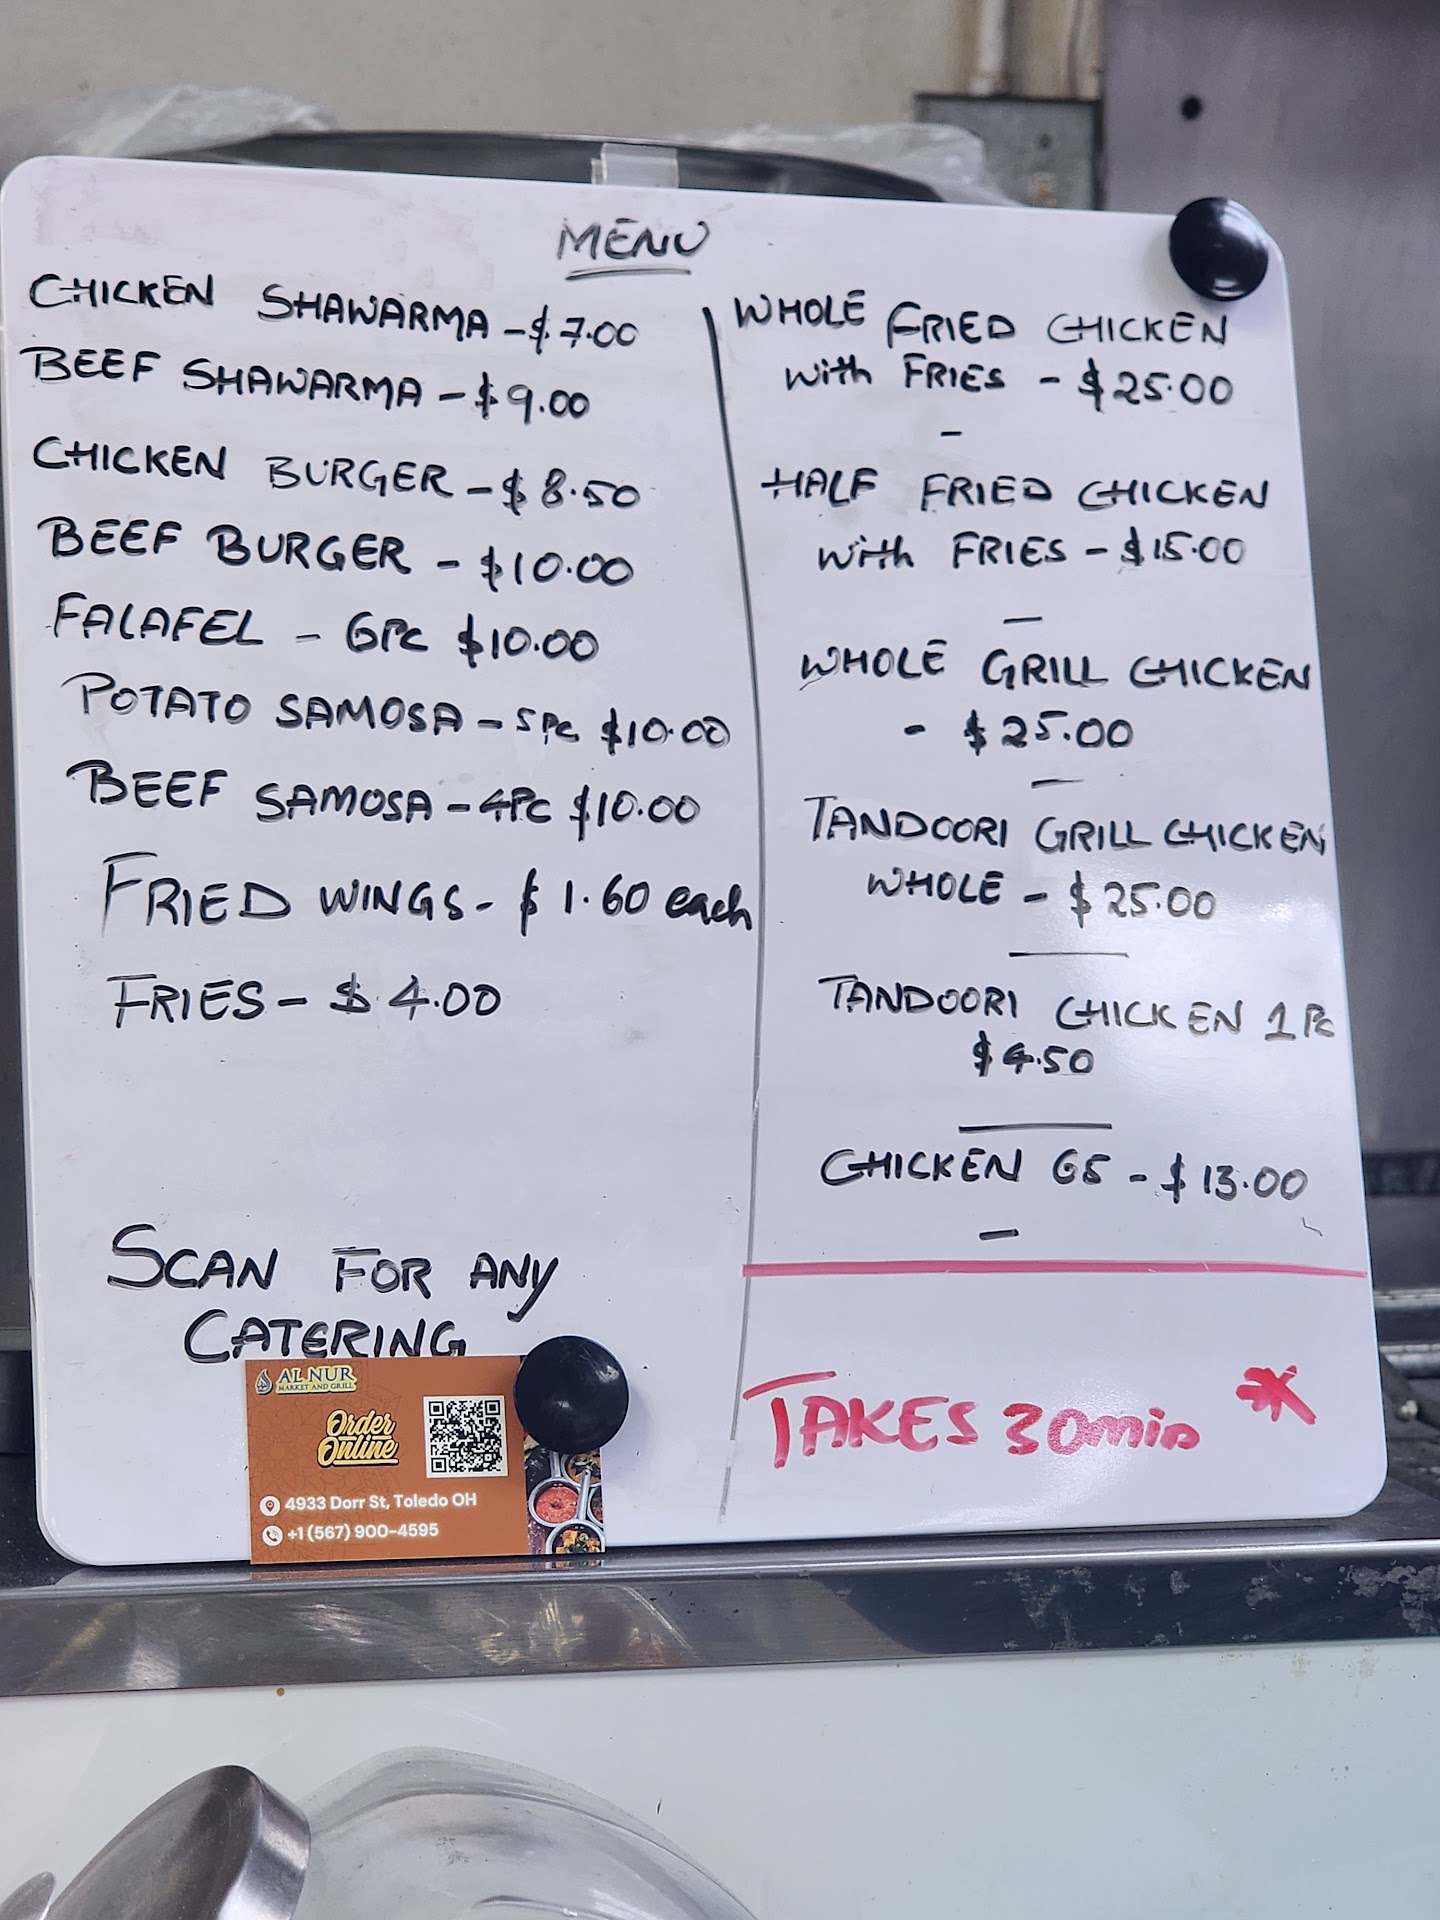 MENU
CHICKEN SHAWARMA - $ 7.00
BEEF SHAWARMA - $ 9.00
CHICKEN BURGER - $ 8.50
BEEF BURGER - $10.00
FALAFEL - 6PC $10.00
POTATO SAMOSA - 5PC $10.00
BEEF SAMOSA - 4PC $10.00
FRIED WINGS - $ 1.60 each
FRIES - $ 4.00
SCAN FOR ANY
CATERING
AL NUR
MARKET AND GRILL
Order
Online
4933 Dorr St, Toledo OH
+1 (567) 900-4595
WHOLE FRIED CHICKEN
with FRIES - $25.00
HALF FRIED CHICKEN
with FRIES - $15.00
WHOLE GRILL CHICKEN
- $25.00
TANDOORI GRILL CHICKEN
WHOLE - $25.00
TANDOORI CHICKEN 1PC
$4.50
CHICKEN 65 - $13.00
TAKES 30min *